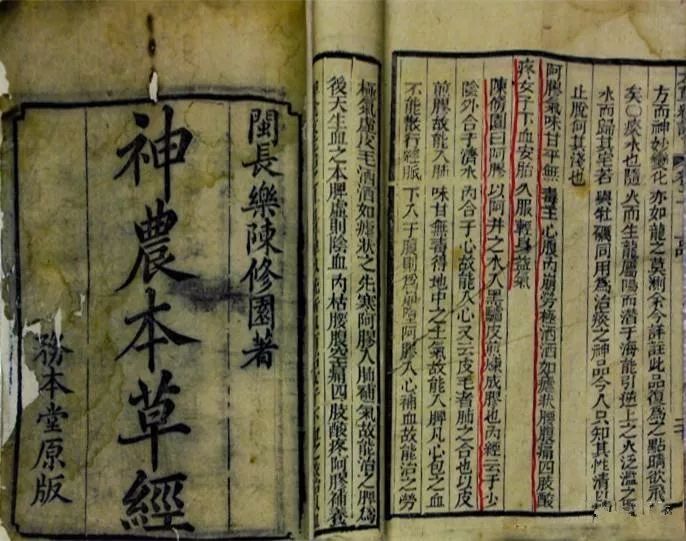 方而神妙變化亦如龍之莫測余今詳註此品復為之點睛欲飛
矣○痰水也隨火而生龍屬陽而潛于海能引逆上之火泛濫之
水而歸其宅若與牡礪同用為治痰之神品今人只知其性澁以
止脫何其淺也
阿膠氣味甘平無毒主心腹內崩勞極洒洒如瘧狀腰腹痛四肢酸
疼女子下血安胎久服輕身益氣
陳修園曰阿膠以阿井之水入黑驢皮煎煉成膠也內經云手少
陰外合于濟水內合于心故能入心又云皮毛者肺之合也以皮
煎膠故能入肺味甘無毒得地中之土氣故能入脾凡心包之血
不能散行經脈下入于腹則為崩墮阿膠入心補血故能治之勞
極氣虛皮毛洒洒如瘧狀之先寒阿膠入肺補氣故能治之脾為
後天生血之本脾虛則陰血內枯腰腹空痛四肢酸疼阿膠補養
閩長樂陳修園著
神農本草經
務本堂原版